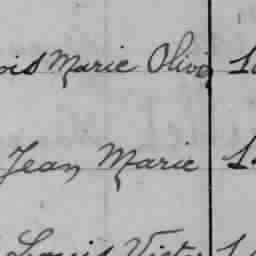 ois Marie Olivier
Jean Marie
Louis Victor